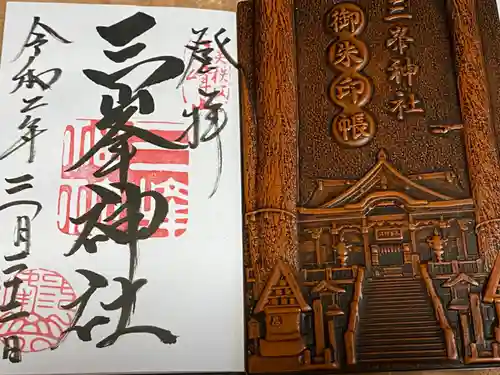 登拝
三峯神社
令和二年
三月二十一日
三峯神社
御朱印帳